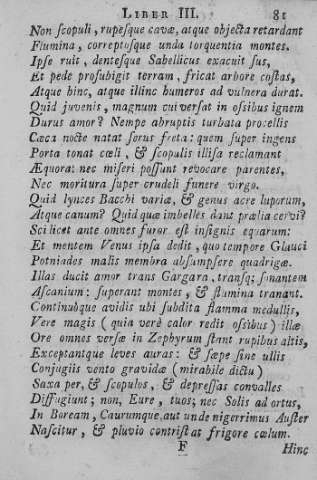 LIBER III. 81
Non scopuli, rupesque cavæ, atque objecta retardant
Flumina, correptosque unda torquentia montes.
Ipse ruit, dentesque Sabellicus exacuit sus,
Et pede prosubigit terram, fricat arbore costas,
Atque hinc, atque illinc humeros ad vulnera durat.
Quid juvenis, magnum cui versat in ossibus ignem
Durus amor? Nempe abruptis turbata procellis
Cæca nocte natat serus freta: quem super ingens
Porta tonat cœli, & scopulis illisa reclamant
Æquora: nec miseri possunt revocare parentes,
Nec moritura super crudeli funere virgo.
Quid lynces Bacchi variæ, & genus acre luporum,
Atque canum? Quid quæ imbelles dant prælia cervi?
Scilicet ante omnes furor est insignis equarum:
Et mentem Venus ipsa dedit, quo tempore Glauci
Potniades malis membra absumpsere quadrigæ.
Illas ducit amor trans Gargara, transq; sonantem
Ascanium: superant montes, & flumina tranant.
Continuoque avidis ubi subdita flamma medullis,
Vere magis (quia verè calor redit ossibus) illæ
Ore omnes versæ in Zephyrum stant rupibus altis,
Exceptantque leves auras: & sæpe sine ullis
Conjugiis vento gravidæ (mirabile dictu)
Saxa per, & scopulos, & depressas convalles
Diffugiunt; non, Eure, tuos; nec Solis ad ortus,
In Boream, Caurumque, aut unde nigerrimus Auster
Nascitur, & pluvio contristat frigore cœlum.
F Hinc